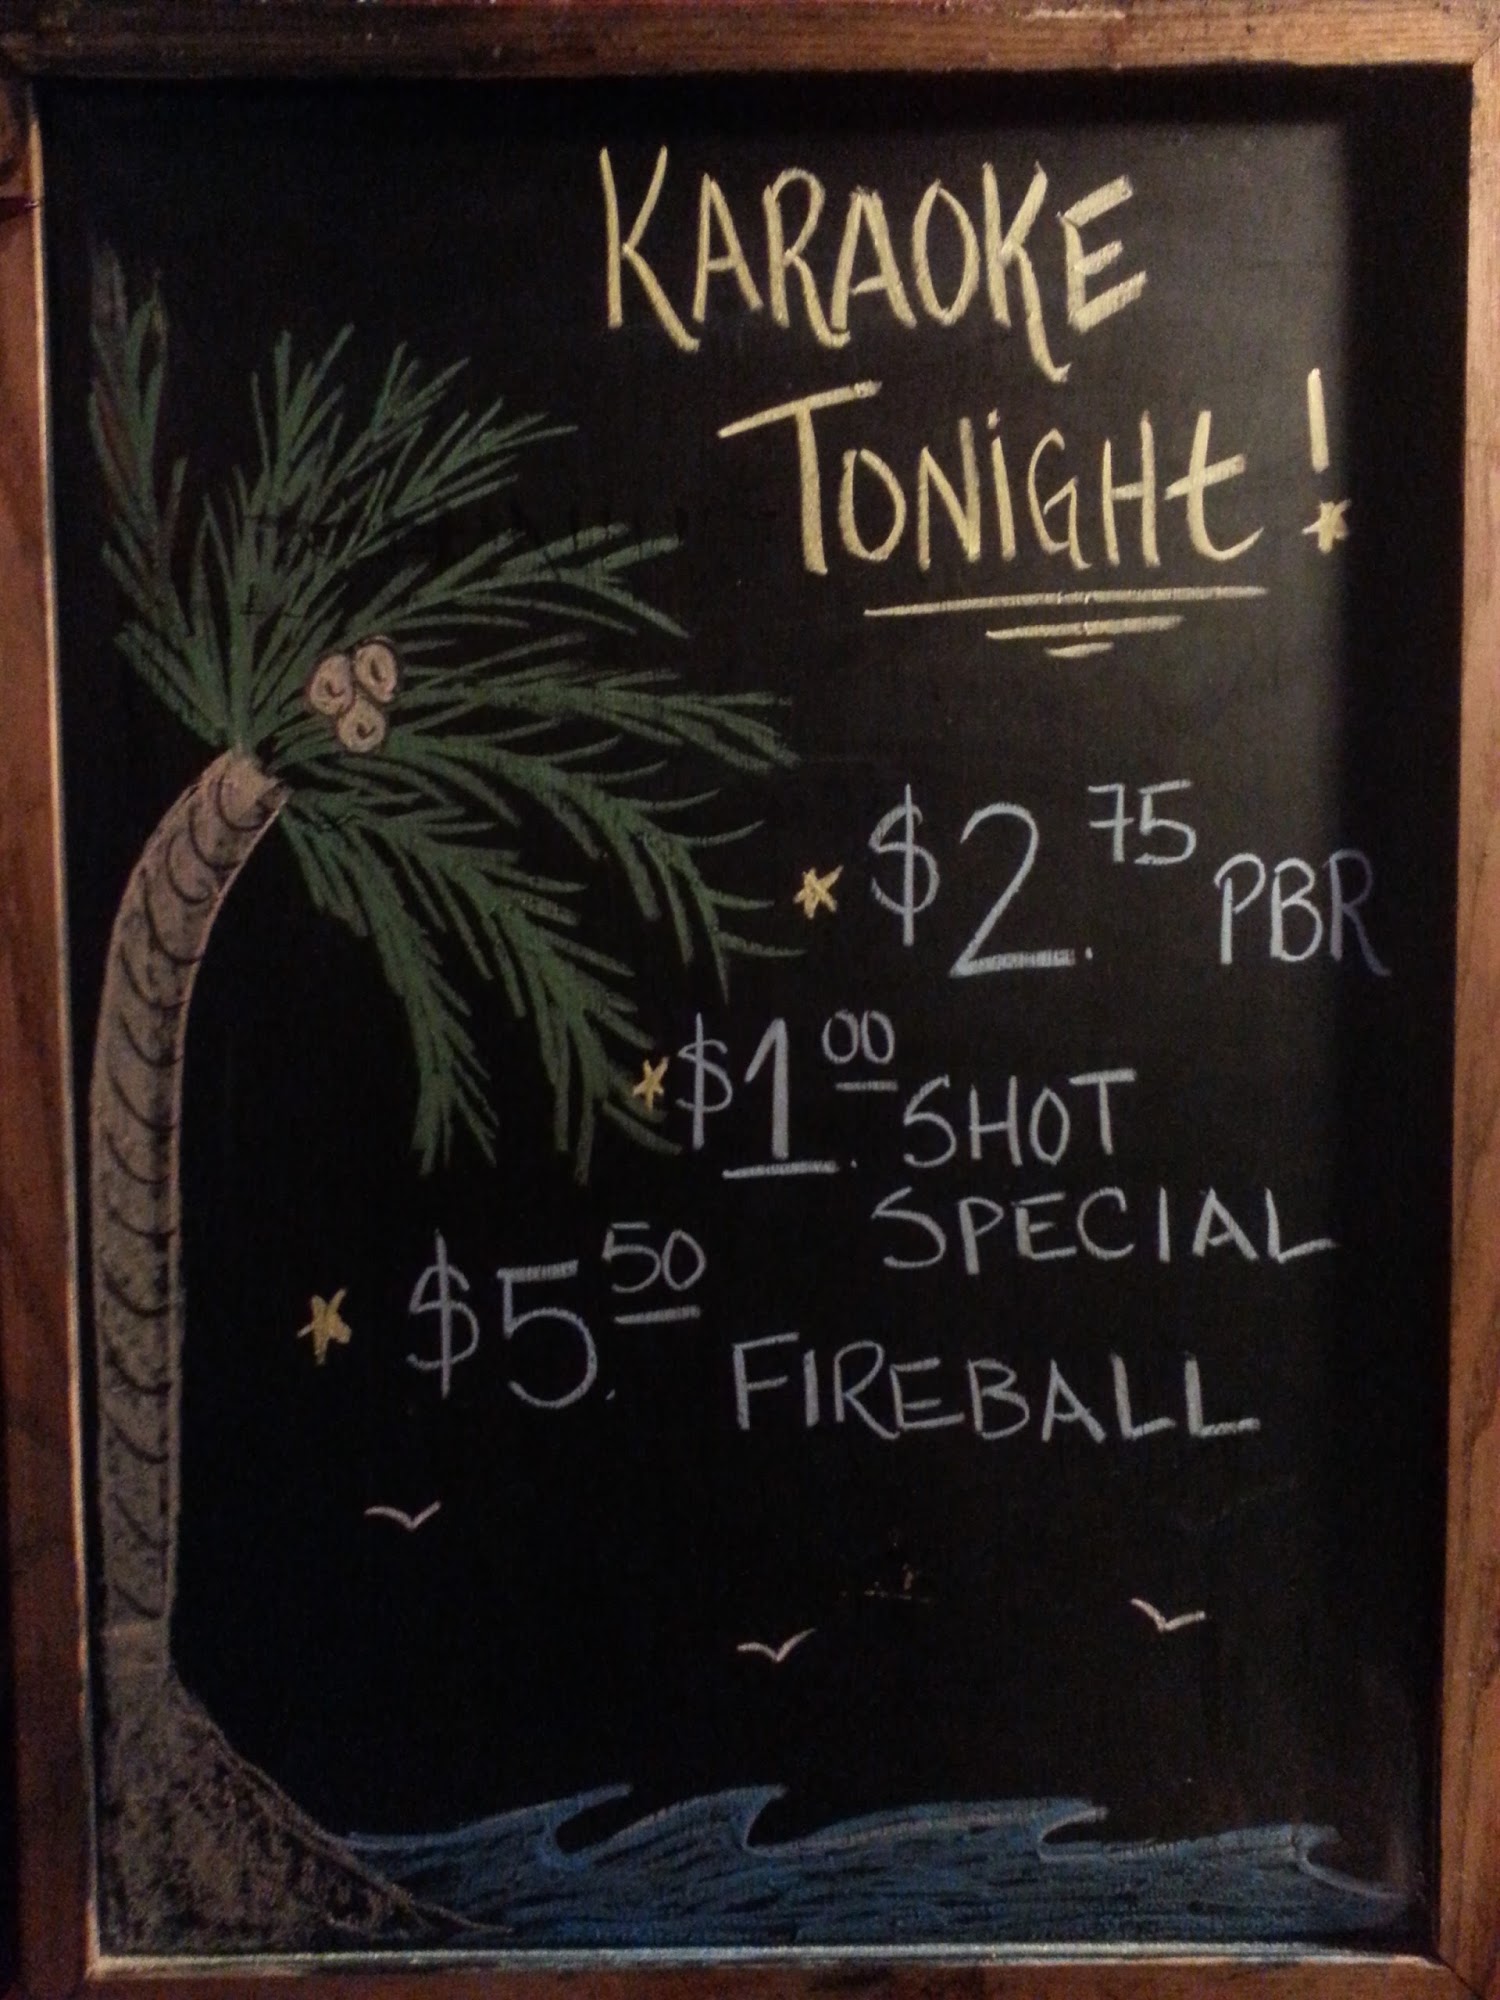 KARAOKE
TONiGHt!
$2.75 PBR
$1.00 SHOT
SPECIAL
$5.50 FIREBALL